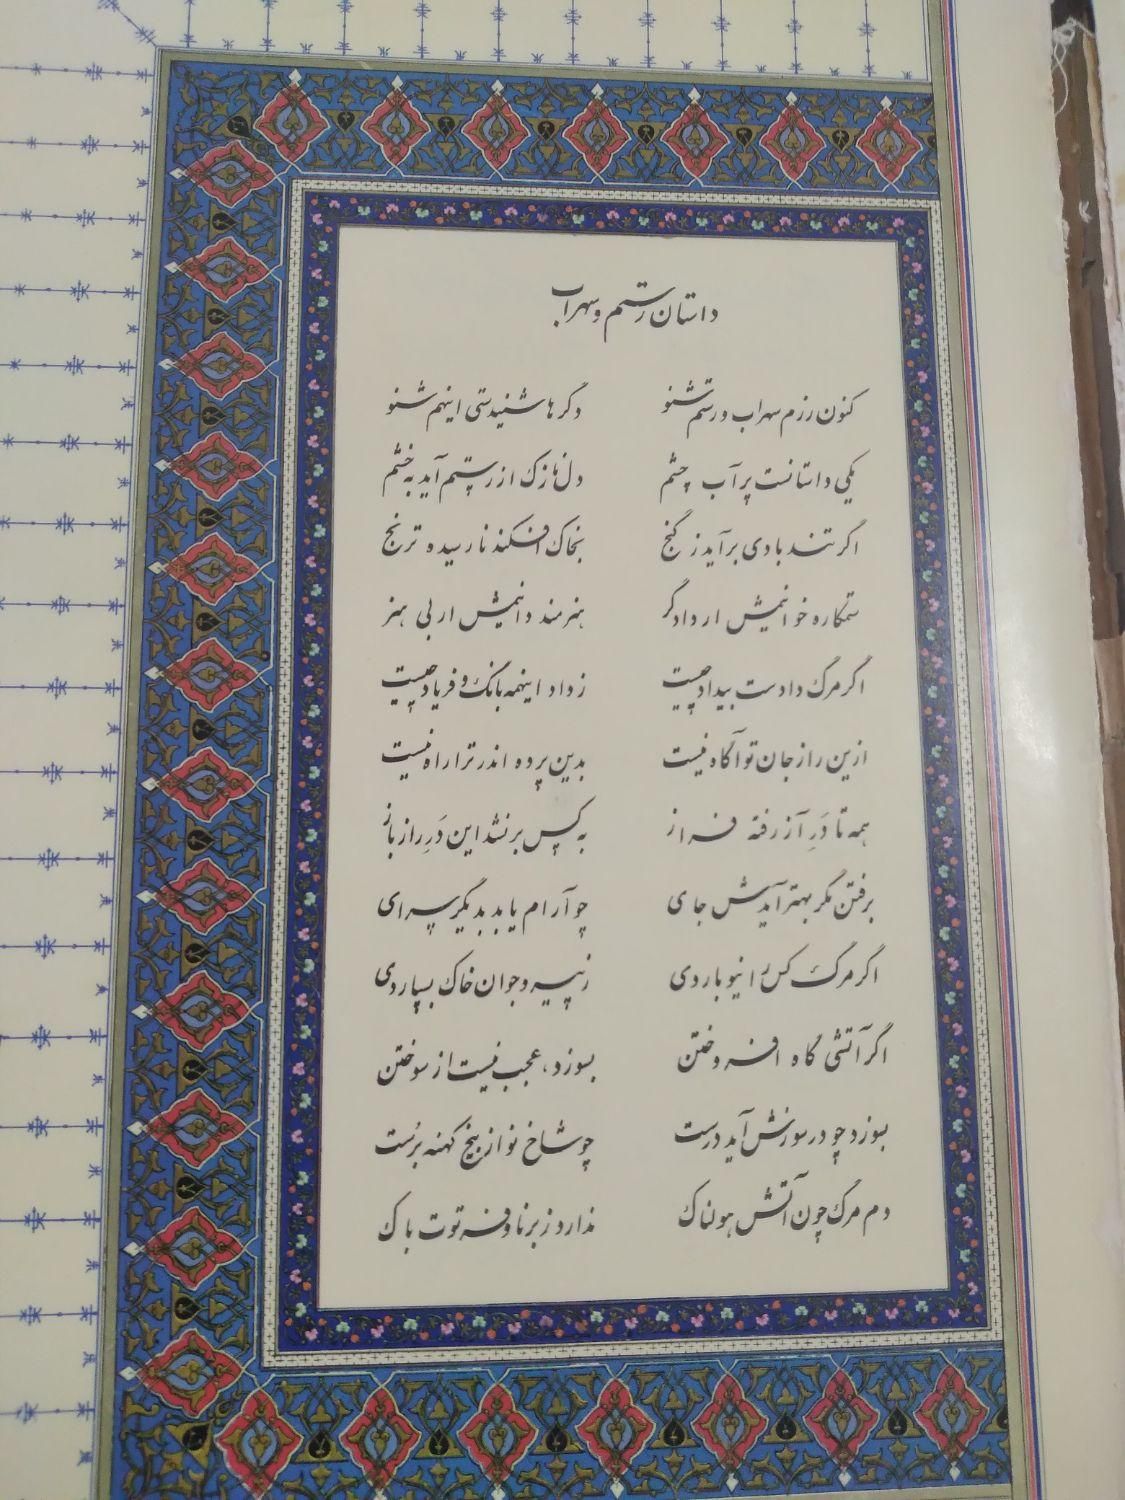 داستان رستم و سهراب
کنون رزم سهراب و رستم شنو دگرها شنیدستی اینهم شنو
یکی داستانست پر آب چشم دل نازک از رستم آید به خشم
اگر تند بادی برآید ز کنج بخاک افکند نارسیده ترنج
ستمکاره خوانیمش ار دادگر هنرمند دانیمش ار بی هنر
اگر مرگ دادست بیداد چیست ز داد اینهمه بانگ و فریاد چیست
ازین راز جان تو آگاه نیست بدین پرده اندر ترا راه نیست
همه تا دَرِ آز رفته فراز به کس بر نشد این دَرِ راز باز
برفتن مگر بهتر آیدش جای چو آرام یابد بدیگر سرای
اگر مرگ کس را نیوباردی ز پیر و جوان خاک بسپاردی
اگر آتشی گاه افروختن بسوزد، عجب نیست از سوختن
بسوزد چو در سوزش آید درست چو شاخ نو از بیخ کهنه برُست
دم مرگ چون آتش هولناک ندارد ز برنا و فرتوت باک